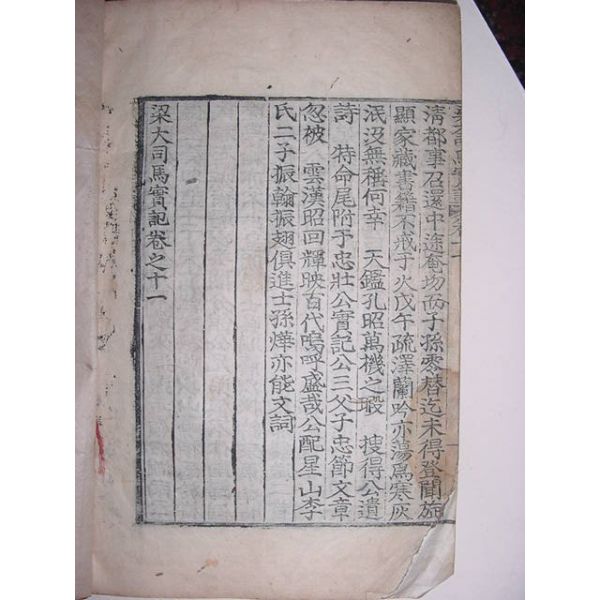 清都事召還中途奄忽而子孫零替迄未得登聞旋
顯家藏書籍不戒于火戊午疏澤蘭吟亦蕩爲寒灰
泯沒無稱何幸　天鑑孔昭萬機之暇　搜得公遺
詩　特命尾附于忠壯公實記公三父子忠節文章
忽被　雲漢昭回輝映百代嗚呼盛哉公配星山李
氏二子振翰振翅俱進士孫燁亦能文詞
梁大司馬實記卷之十一